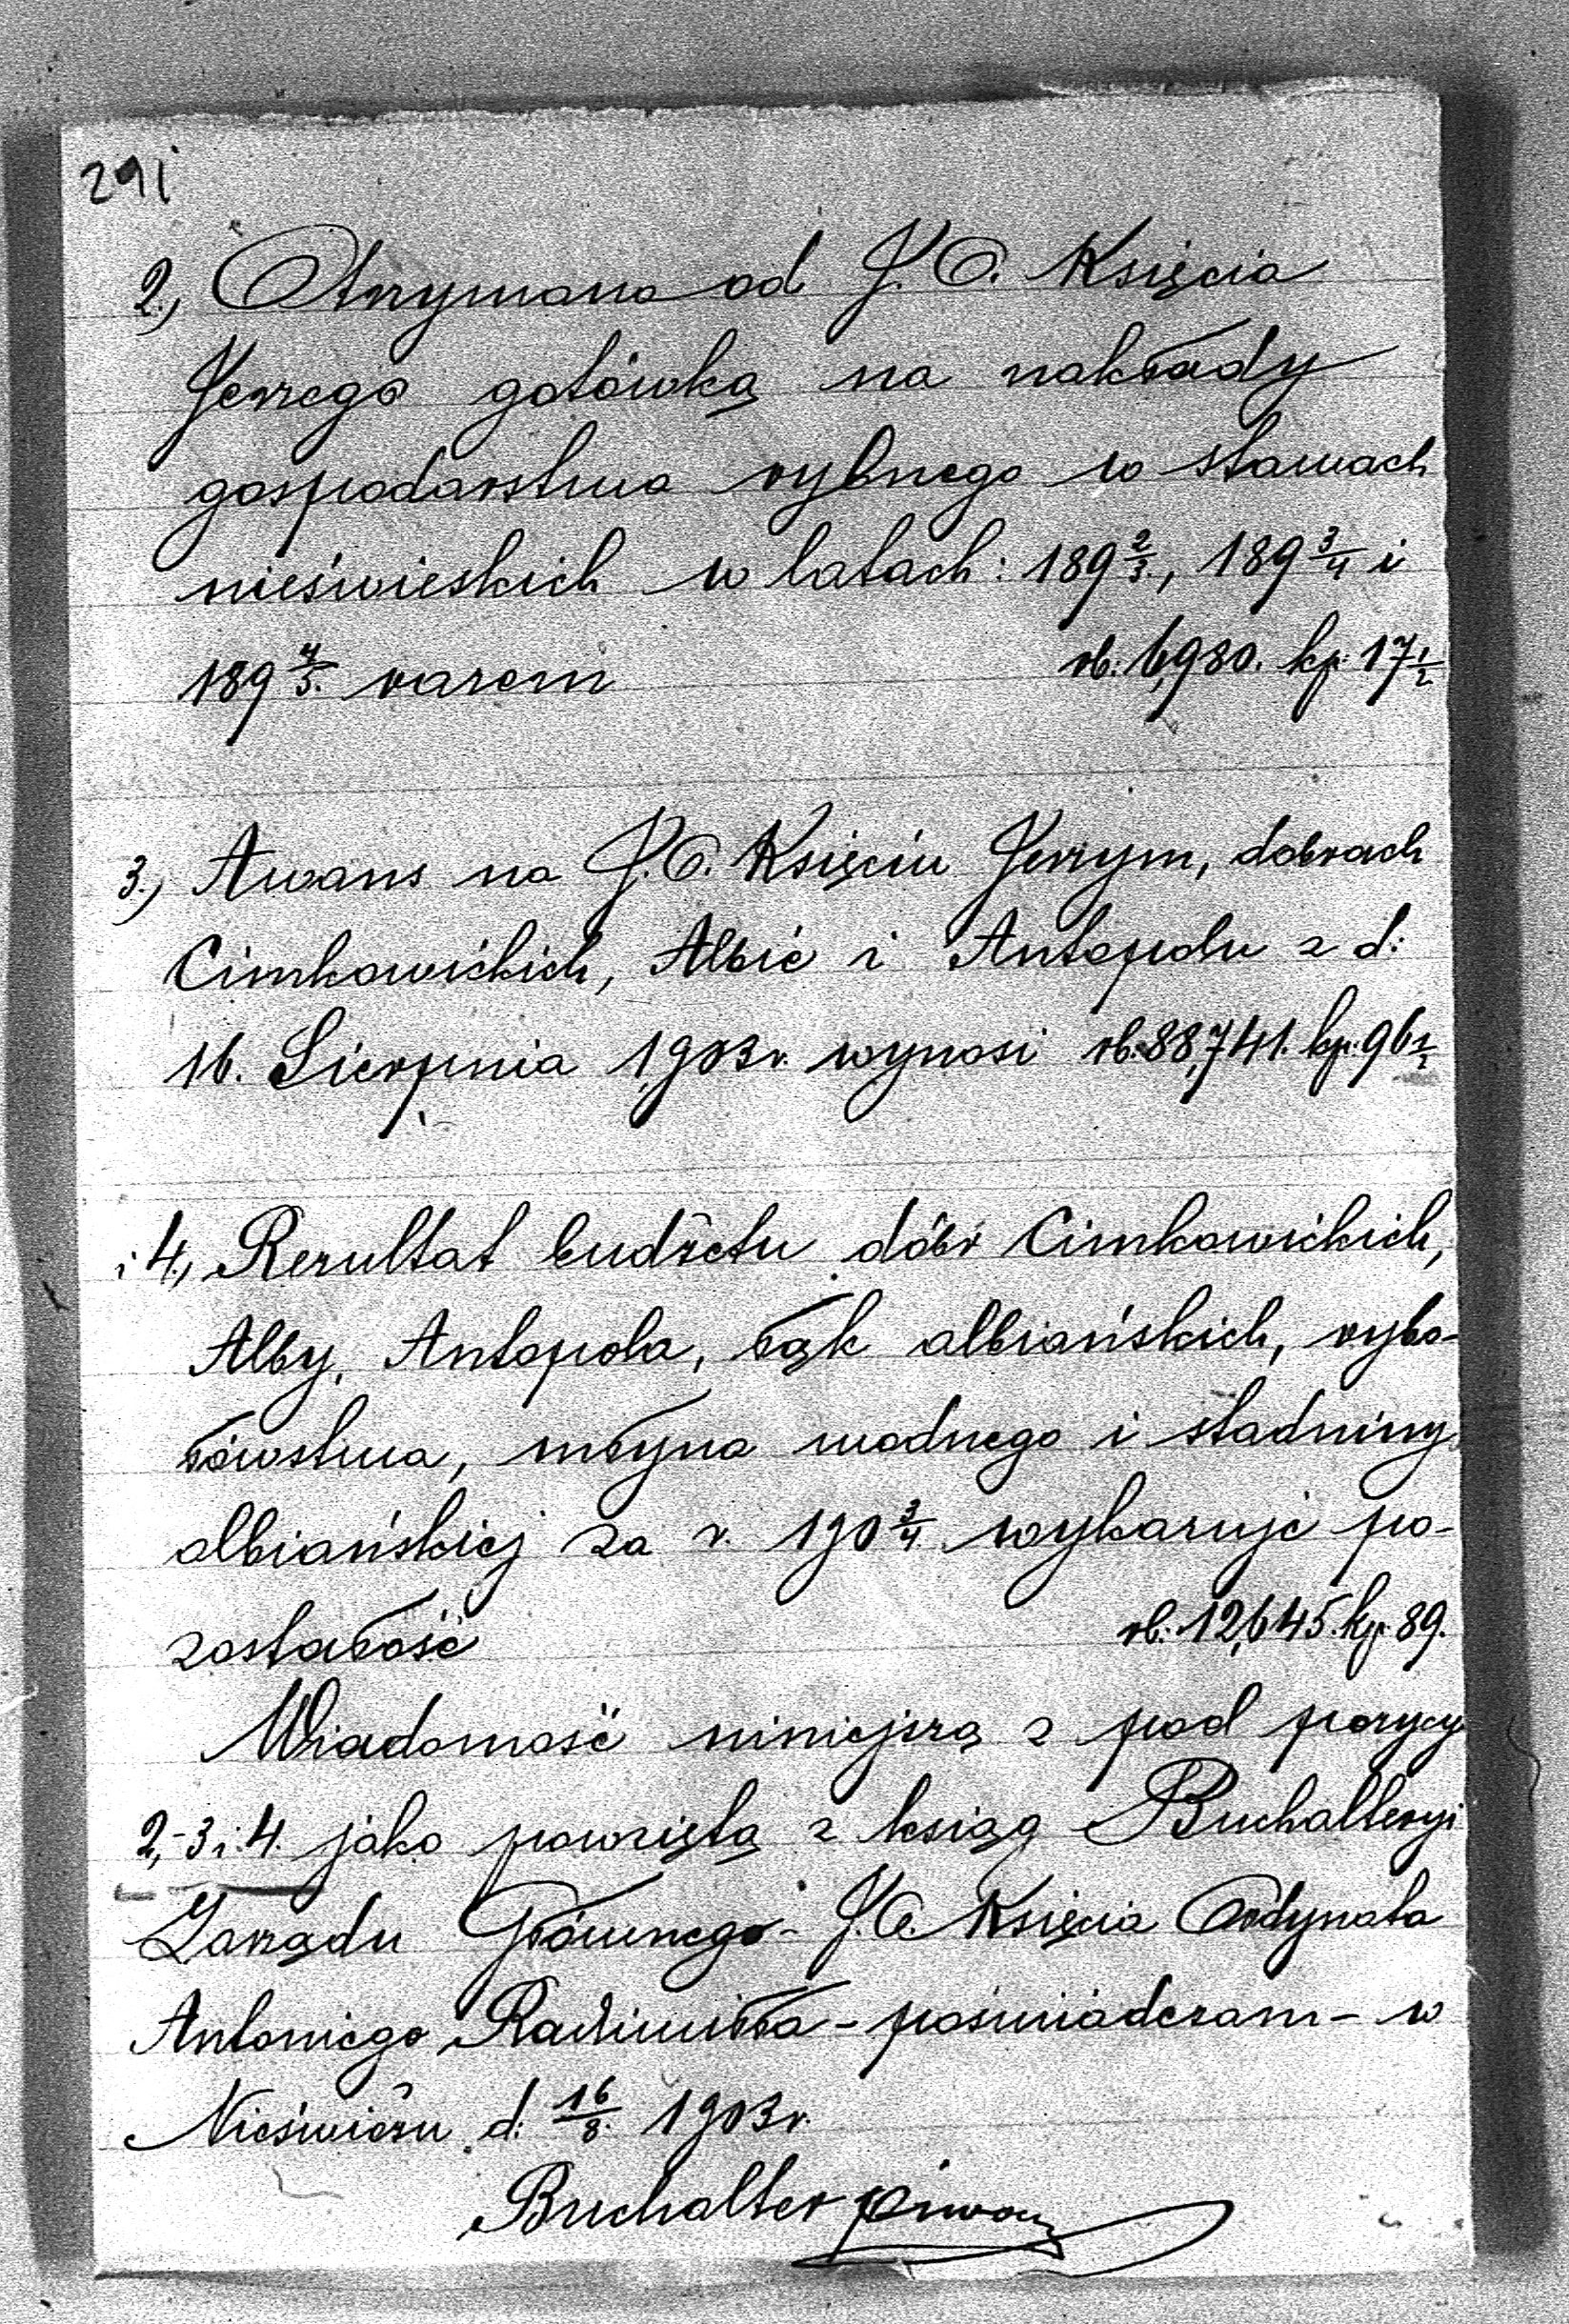 291
2.) Otrzymano od J. O. Księcia
Jerzego gotówką na nakłady
gospodarstwa rybnego w stawach
nieświeskich w latach: 189 2/3., 189 3/4 i
189 4/5. razem rb: 6,980. kp: 17 1/2
3.) Awans na J. O. Księciu Jerzym, dobrach
Cimkowickich, Albie i Antopolu z d:
16. Sierpnia 1903 r. wynosi rb: 88,741. kp: 96 1/2
i 4., Rezultat budżetu dóbr Cimkowickich,
Alby, Antopola, łąk albiańskich, rybo-
łówstwa, młyna wodnego i stadniny
albiańskiej za r. 190 3/4 wykazuje po-
zostałość rb: 12,645. kp: 89.
Wiadomość niniejszą z pod pozycyi
2,-3 i 4. jako powziętą z ksiąg Buchalteryi
Zarządu Głównego - J. O. Księcia Ordynata
Antoniego Radziwiłła - poświadczam - w
Nieświeżu d: 16/8. 1903 r.
Buchalter